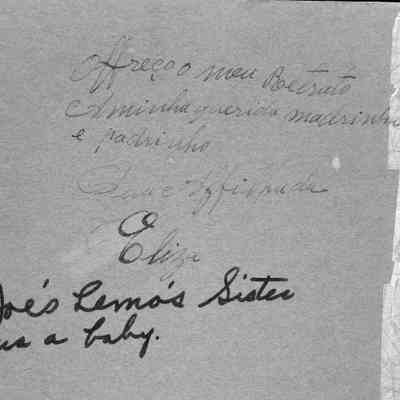 Offreço o meu Retrato
Aminha querida madrinha
e padrinho
Affilhada
Eliza
Joés Lemós Sister
as a baby.